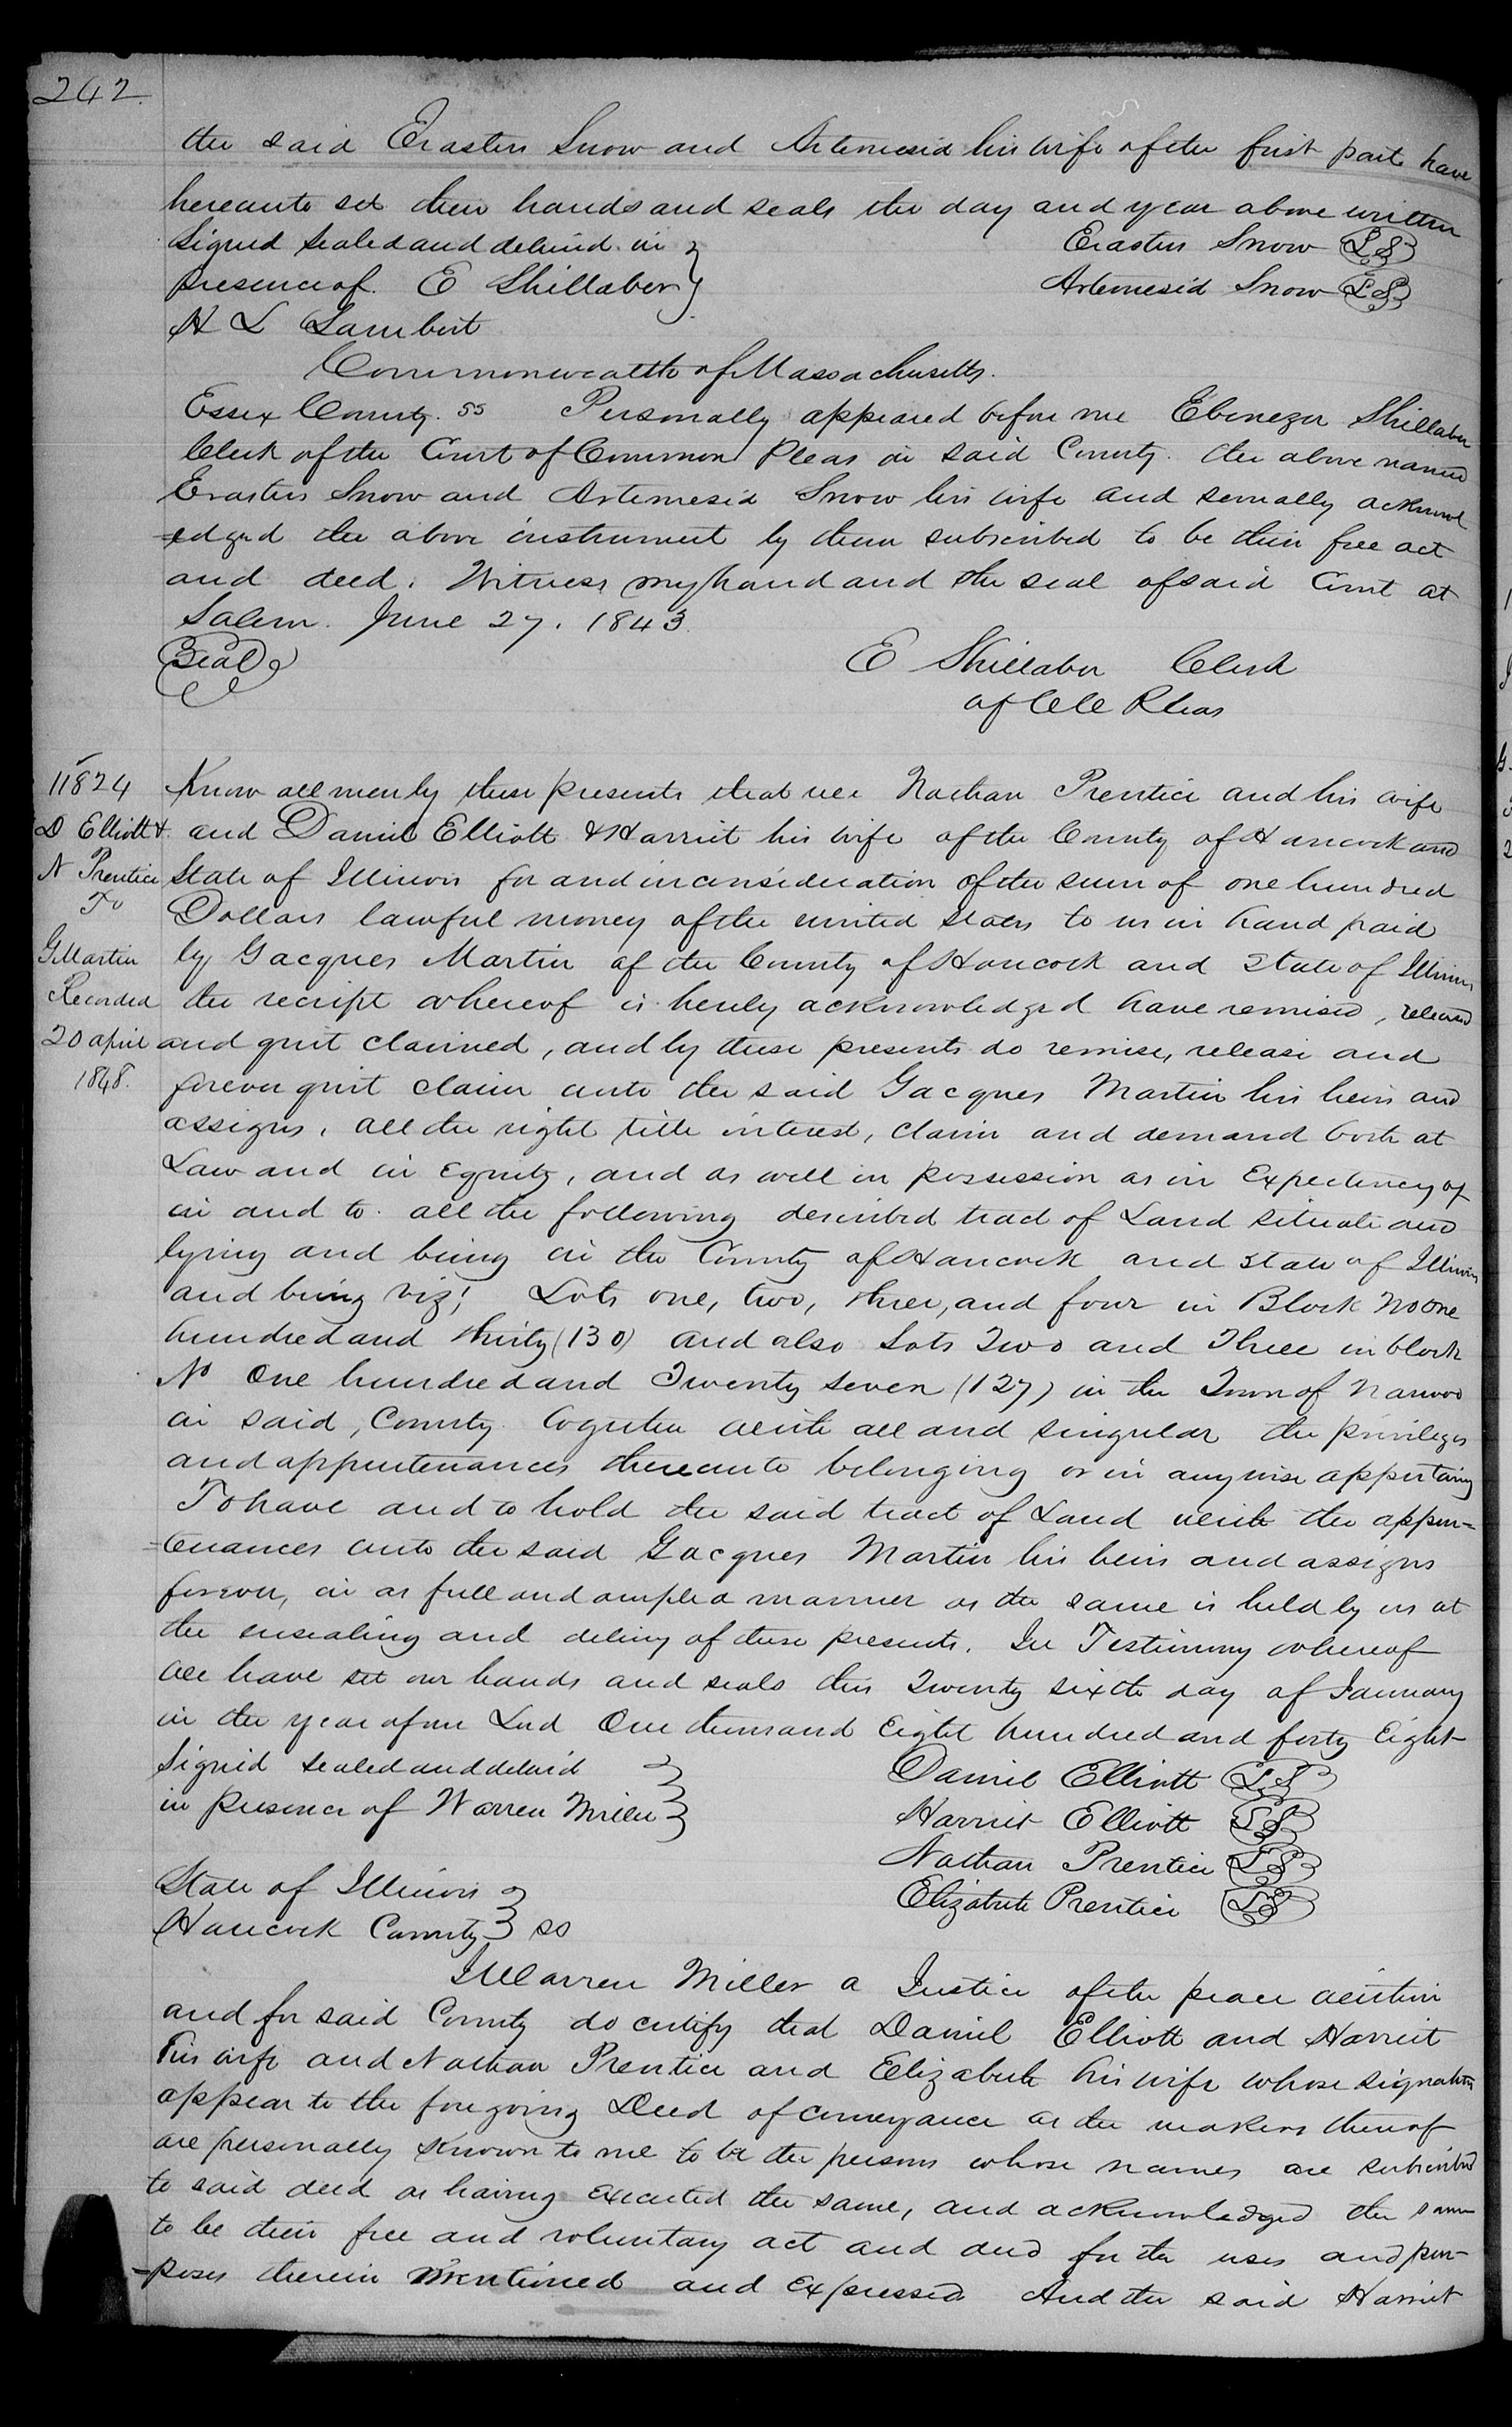 242.
the said Erastus Snow and Artemesia his wife of the first part have
hereunto set their hands and seals the day and year above written
Signed Sealed and delivrd in
Erastus Snow L S
presence of. E Shillaber
Artemesia Snow L S
H L Lambert
Commonwealth of Massachusetts.
Essex County. ss Personally appeared before me Ebenezer Shillaber
Clerk of the Court of Common Pleas in said County. the above named
Erastus Snow and Artemesia Snow his wife and severally acknowl
=edged the above instrument by them subscribed to be their free act
and deed. Witness my hand and the seal of said Court at
Salem. June 27. 1843.
Seal
E Shillaber Clerk
of C C Pleas
11824
D Elliott &
N Prentice
To
G Martin
Recorded
20 april
1848.
Know all men by these presents that we Nathan Prentice and his wife
and Daniel Elliott & Harriet his wife of the County of Hancock and
State of Illinois for and in consideration of the sum of one hundred
Dollars lawful money of the united States to us in hand paid
by Gacques Martin of the County of Hancock and State of Illinois
the receipt whereof is hereby acknowledged have remised, released
and quit claimed, and by these presents do remise, release and
forever quit claim unto the said Gacques Martin his heirs and
assigns, all the right title interest, claim and demand both at
Law and in Equity, and as well in possession as in Expectency of
in and to all the following described tract of Land situate and
lying and being in the County of Hancock and State of Illinois
and being viz! Lots one, two, three, and four in Block No one
hundred and thirty (130) and also Lots Two and Three in block
No One hundred and Twenty Seven (127) in the Town of Nauvoo
in said, County. together with all and singular the privileges
and appurtenances thereunto belonging or in anywise appertaing
To have and to hold the said tract of Land with the appur=
=tenances unto the said Gacques Martin his heirs and assigns
forever, in as full and ample a manner as the same is held by us at
the ensealing and delivy of these presents. In Testimony whereof
We have set our hands and seals this Twenty sixth day of January
in the year of our Lord One thousand Eight hundred and forty Eight
Signed Sealed and delivrd
in presence of Warren Miller
Daniel Elliott L S
Harriet Elliott L S
Nathan Prentice L S
Elizabeth Prentice L S
State of Illinois
Hancock County ss
I Warren Miller a Justice of the peace within
and for said County do certify that Daniel Elliott and Harriet
his wife and Nathan Prentice and Elizabeth his wife whose signatures
appear to the foregoing Deed of conveyance as the makers thereof
are personally known to me to be the persons whose names are subscribed
to said deed as having executed the same, and acknowledged the same
to be their free and voluntary act and deed for the uses and pur-
=poses therein mentioned and expressed And the said Harriet